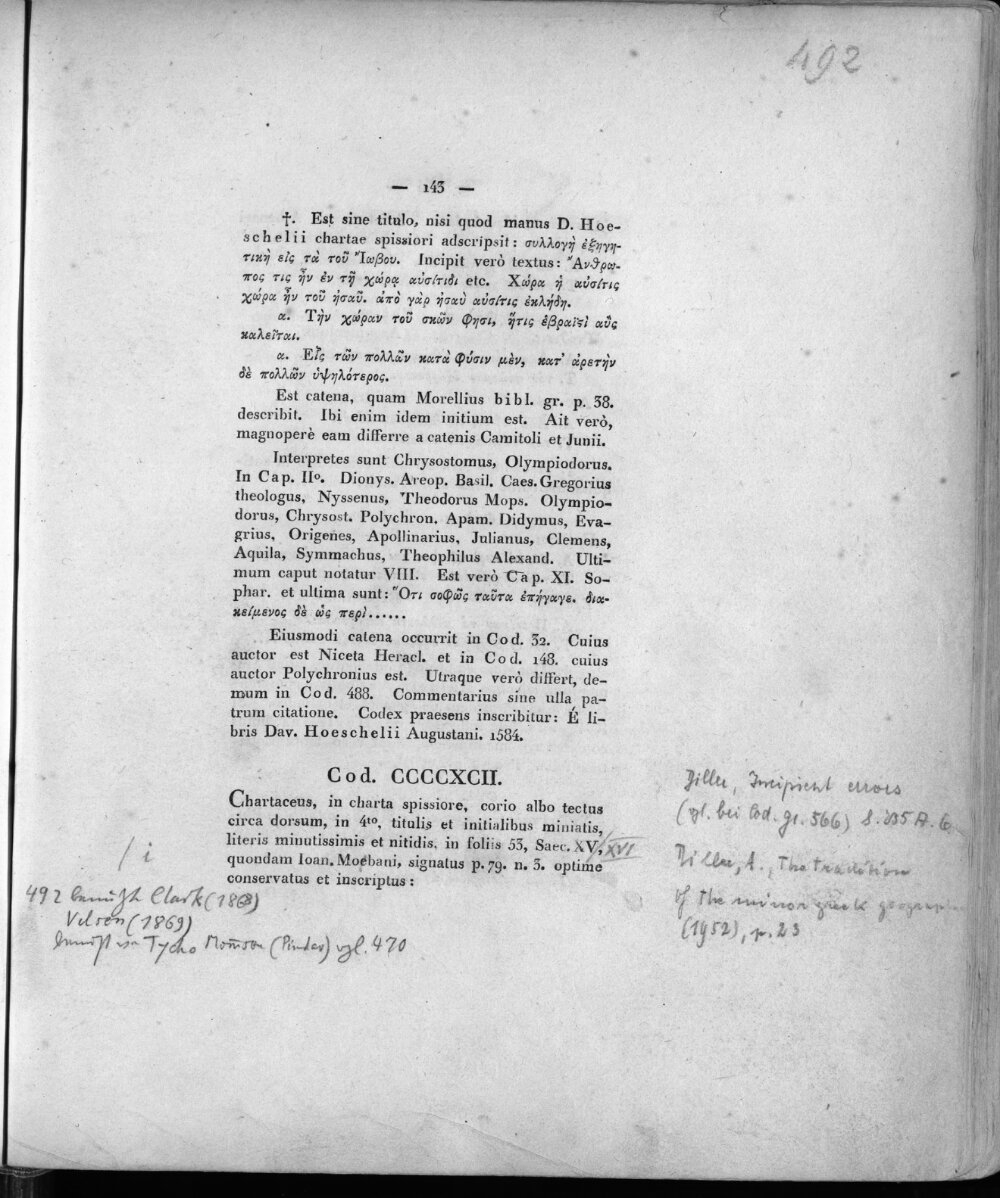 492
— 143 —
†. Est sine titulo, nisi quod manus D. Hoe-
schelii chartae spissiori adscripsit: συλλογὴ ἐξηγη-
τικὴ εἰς τὰ τοῦ Ἰωβου. Incipit verò textus: Ἄνθρω-
πος τις ἦν ἐν τῇ χώρᾳ αὐσίτιδι etc. Χώρα ἡ αὐσίτις
χώρα ἦν τοῦ ἡσαῦ. ἀπὸ γὰρ ἡσαὺ αὐσίτις ἐκλήθη.
α. Τὴν χώραν τοῦ σκῶν φησι, ἥτις ἑβραϊστὶ αὖς
καλεῖται.
α. Εἷς τῶν πολλῶν κατὰ φύσιν μὲν, κατ' ἀρετὴν
δὲ πολλῶν ὑψηλότερος.
Est catena, quam Morellius bibl. gr. p. 38.
describit. Ibi enim idem initium est. Ait verò,
magnoperè eam differre a catenis Camitoli et Junii.
Interpretes sunt Chrysostomus, Olympiodorus.
In Cap. IIº. Dionys. Areop. Basil. Caes. Gregorius
theologus, Nyssenus, Theodorus Mops. Olympio-
dorus, Chrysost. Polychron. Apam. Didymus, Eva-
grius, Origenes, Apollinarius, Julianus, Clemens,
Aquila, Symmachus, Theophilus Alexand. Ulti-
mum caput notatur VIII. Est verò Cap. XI. So-
phar. et ultima sunt: Ὅτι σοφῶς ταῦτα ἐπήγαγε. δια-
κείμενος δὲ ὡς περὶ......
Eiusmodi catena occurrit in Cod. 32. Cuius
auctor est Niceta Heracl. et in Cod. 148. cuius
auctor Polychronius est. Utraque verò differt, de-
mum in Cod. 488. Commentarius sine ulla pa-
trum citatione. Codex praesens inscribitur: É li-
bris Dav. Hoeschelii Augustani. 1584.
Cod. CCCCXCII.
Chartaceus, in charta spissiore, corio albo tectus
circa dorsum, in 4to, titulis et initialibus miniatis,
literis minutissimis et nitidis, in foliis 53, Saec. XV, /XVI
quondam Ioan. Moebani, signatus p. 79. n. 3. optime
conservatus et inscriptus:
/ i
492 benützt Clark (1868)
Velsen (1869)
benützt von Tycho Mom̄sen (Pindar) vgl. 470
Diller, Incipient errors
(vgl. bei Cod. gr. 566) S. 235 A. 6
Diller, A., The tradition
of the minor greek
(1952), p. 23